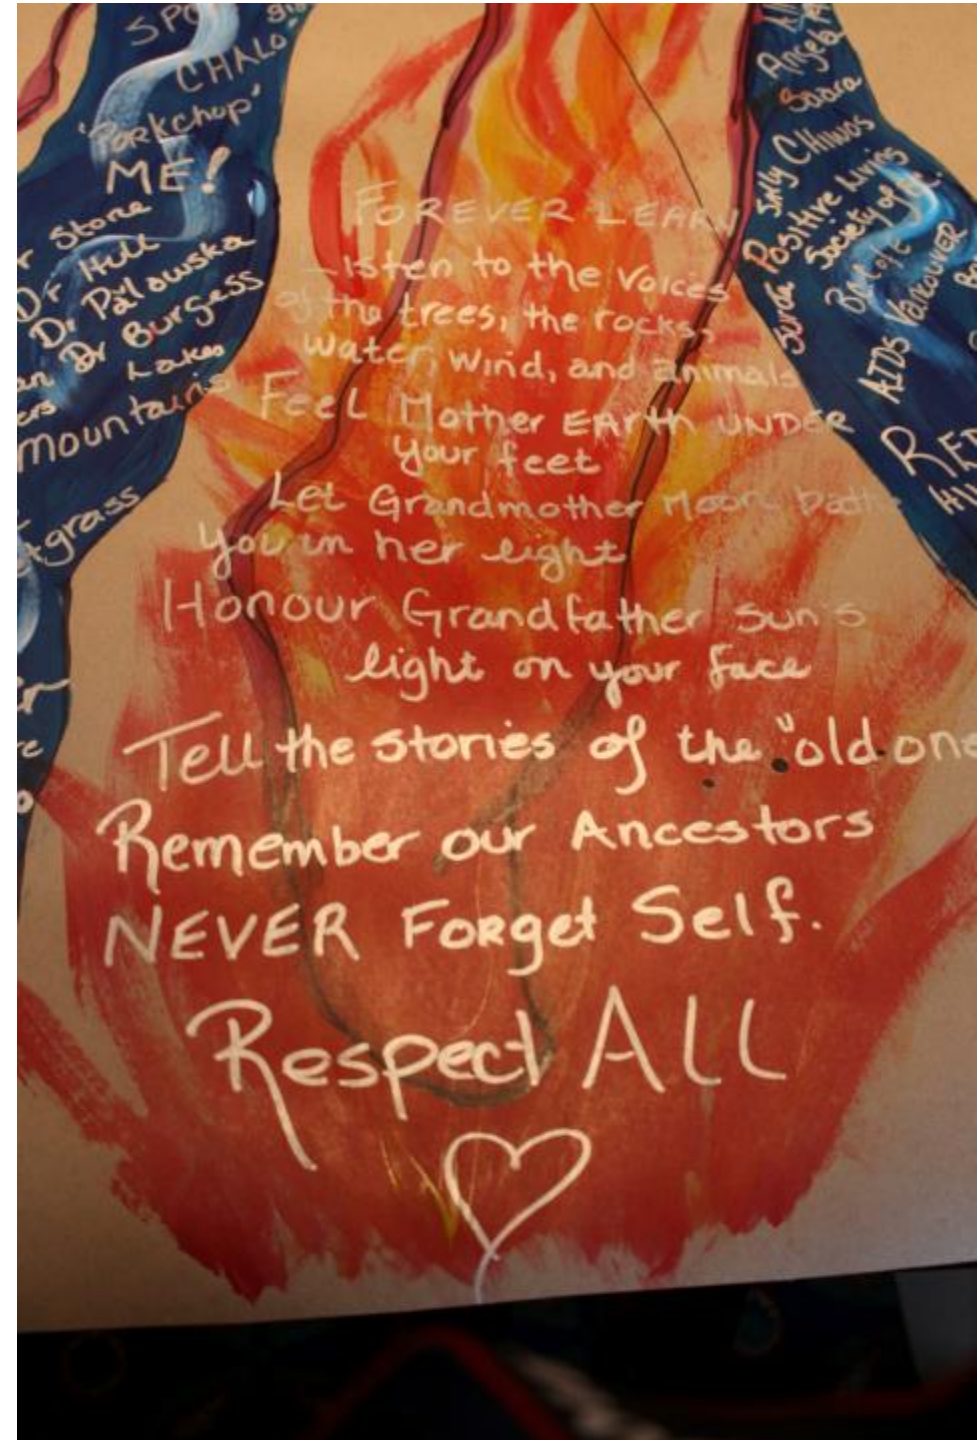 SPO
CHALO
"Porkchop"
ME!
Store
Dr Hill
Dr Pawlowska
Dr Burgess
Lakes
mountains
grass
FOREVER LEARN
Listen to the voices
of the trees, the rocks,
water, wind, and animals
Feel Mother EARth UNDER
your feet
Let Grandmother Moon bath
you in her light
Honour Grandfather Sun's
light on your face
Tell the stories of the "old one
Remember our Ancestors
NEVER Forget Self.
Respect ALL
Angela
CHIWOS
Positive Living
Society of
AIDS Vancouver
RED